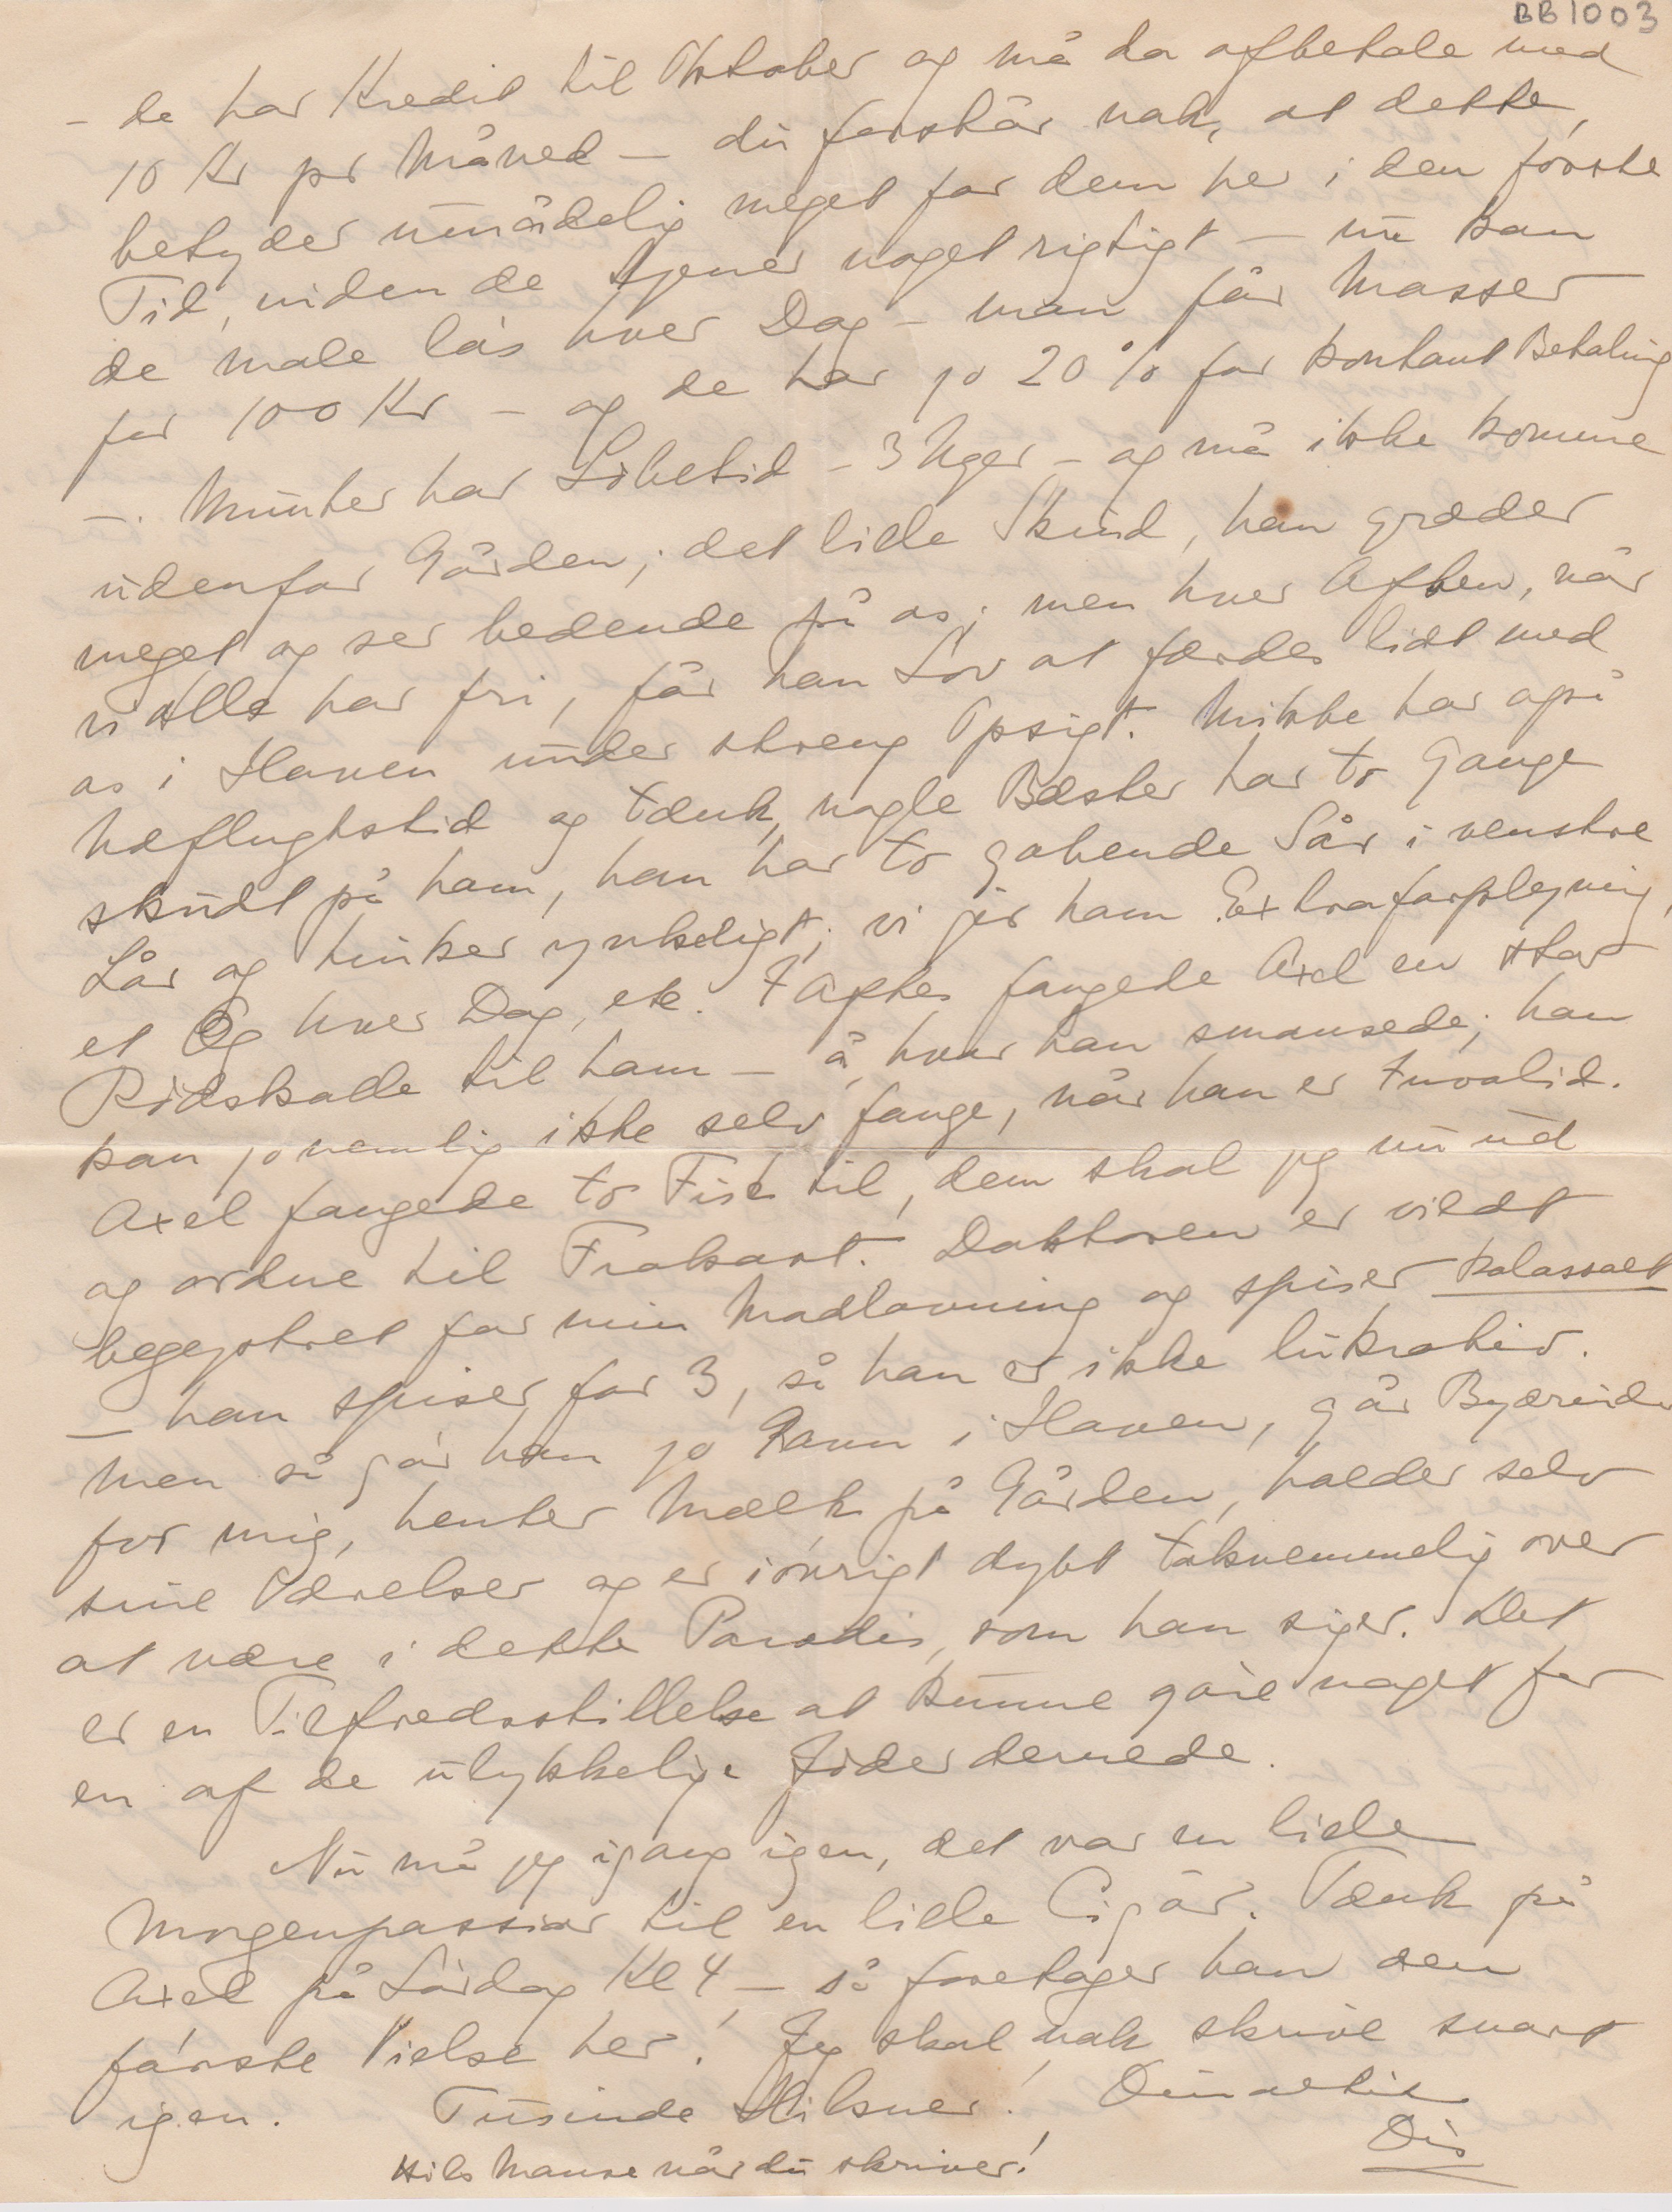 BB1003
- de har Kredit til Oktober og må da afbetale med
10 Kr pr Måned – du forstår nok, at dette,
betyder umådelig meget for dem her i den første
Tid, inden de tjener noget rigtigt – nu kan
de male løs hver Dag – man får Masser
for 100 Kr – og de har jo 20% for kontant Betaling
–. Munter har Löbetid – 3 Uger – og må ikke komme
udenfor Gården; det lille Skind, han græder
meget og ser bedende på os; men hver Aften, når
vi alle har fri, får han Lov at færdes lidt med
os i Haven under streng Opsigt. Mikke har også
Uflugtstid og tænk, nogle Bæster har to Gange
skudt på ham, han har to gabende Sår i venstre
Lår og hinker ynkeligt; vi gir ham Extraforplejning,
et Æg hver Dag, etc. I Aftes fangede Axel en stor
Rødskalle til ham – å, hvor han smausede; han
kan jo nemlig ikke selv fange, når han er Invalid.
Axel fangede to Fisk til, dem skal jeg nu ud
og ordne til Frokost. Doktoren er vildt
begejstret for min Madlavning og spiser kolossalt
– han spiser for 3, så han er ikke lukrativ.
Men så gör han jo Gavn i Haven, går Byærinder
for mig, henter Mælk på Gården, holder selv
sine Værelser og er iövrigt dybt taknemmelig over
at være i dette Paradis, som han siger. Det
er en Tilfredsstillelse at kunne göre noget for
en af de ulykkelige Jöder dernede.
Nu må jeg igang igen, det var en lille
Morgenpassiar til en lille Cigar. Tænk på
Axel på Lördag Kl 4 – så foretager han den
förste Vielse her! Jeg skal nok skrive snart
igen. Tusinde Hilsner! Din altid
Dis
Hils Manse når du skriver!